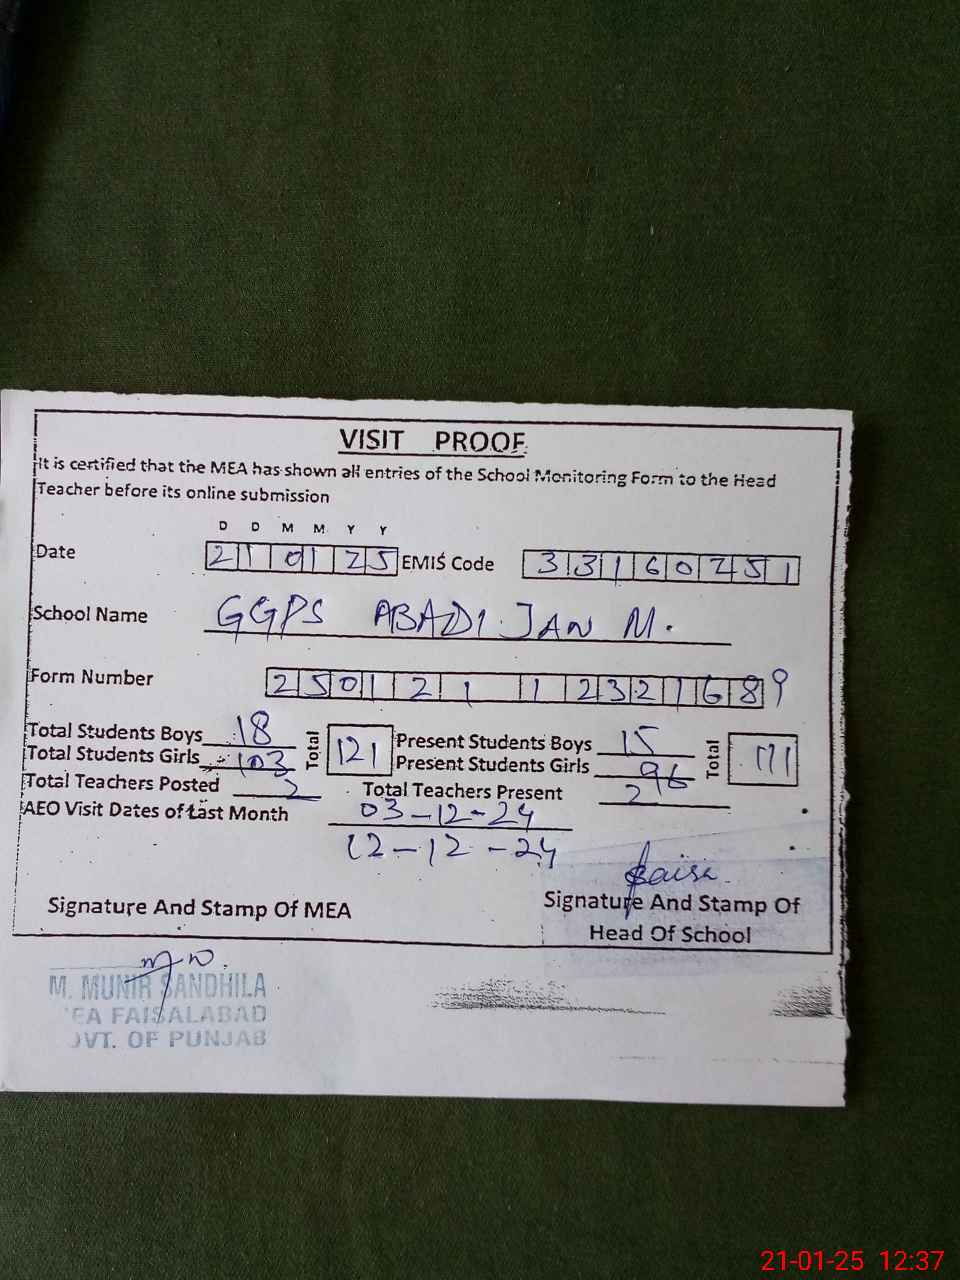 VISIT PROOF
It is certified that the MEA has shown all entries of the School Monitoring Form to the Head
Teacher before its online submission
D D M M Y Y
Date 210125 EMIS Code 33160251
School Name GGPS ABADI JAN M.
Form Number 2501211232168 9
Total Students Boys 18 Present Students Boys 15
Total Students Girls 103 Total 121 Present Students Girls 96 Total 111
Total Teachers Posted 2 Total Teachers Present 2
AEO Visit Dates of Last Month 03-12-24
12-12-24
Signature And Stamp Of MEA Signature And Stamp Of
Head Of School
M. MUNIR SANDHILA
EA FAISALABAD
OVT. OF PUNJAB
21-01-25 12:37